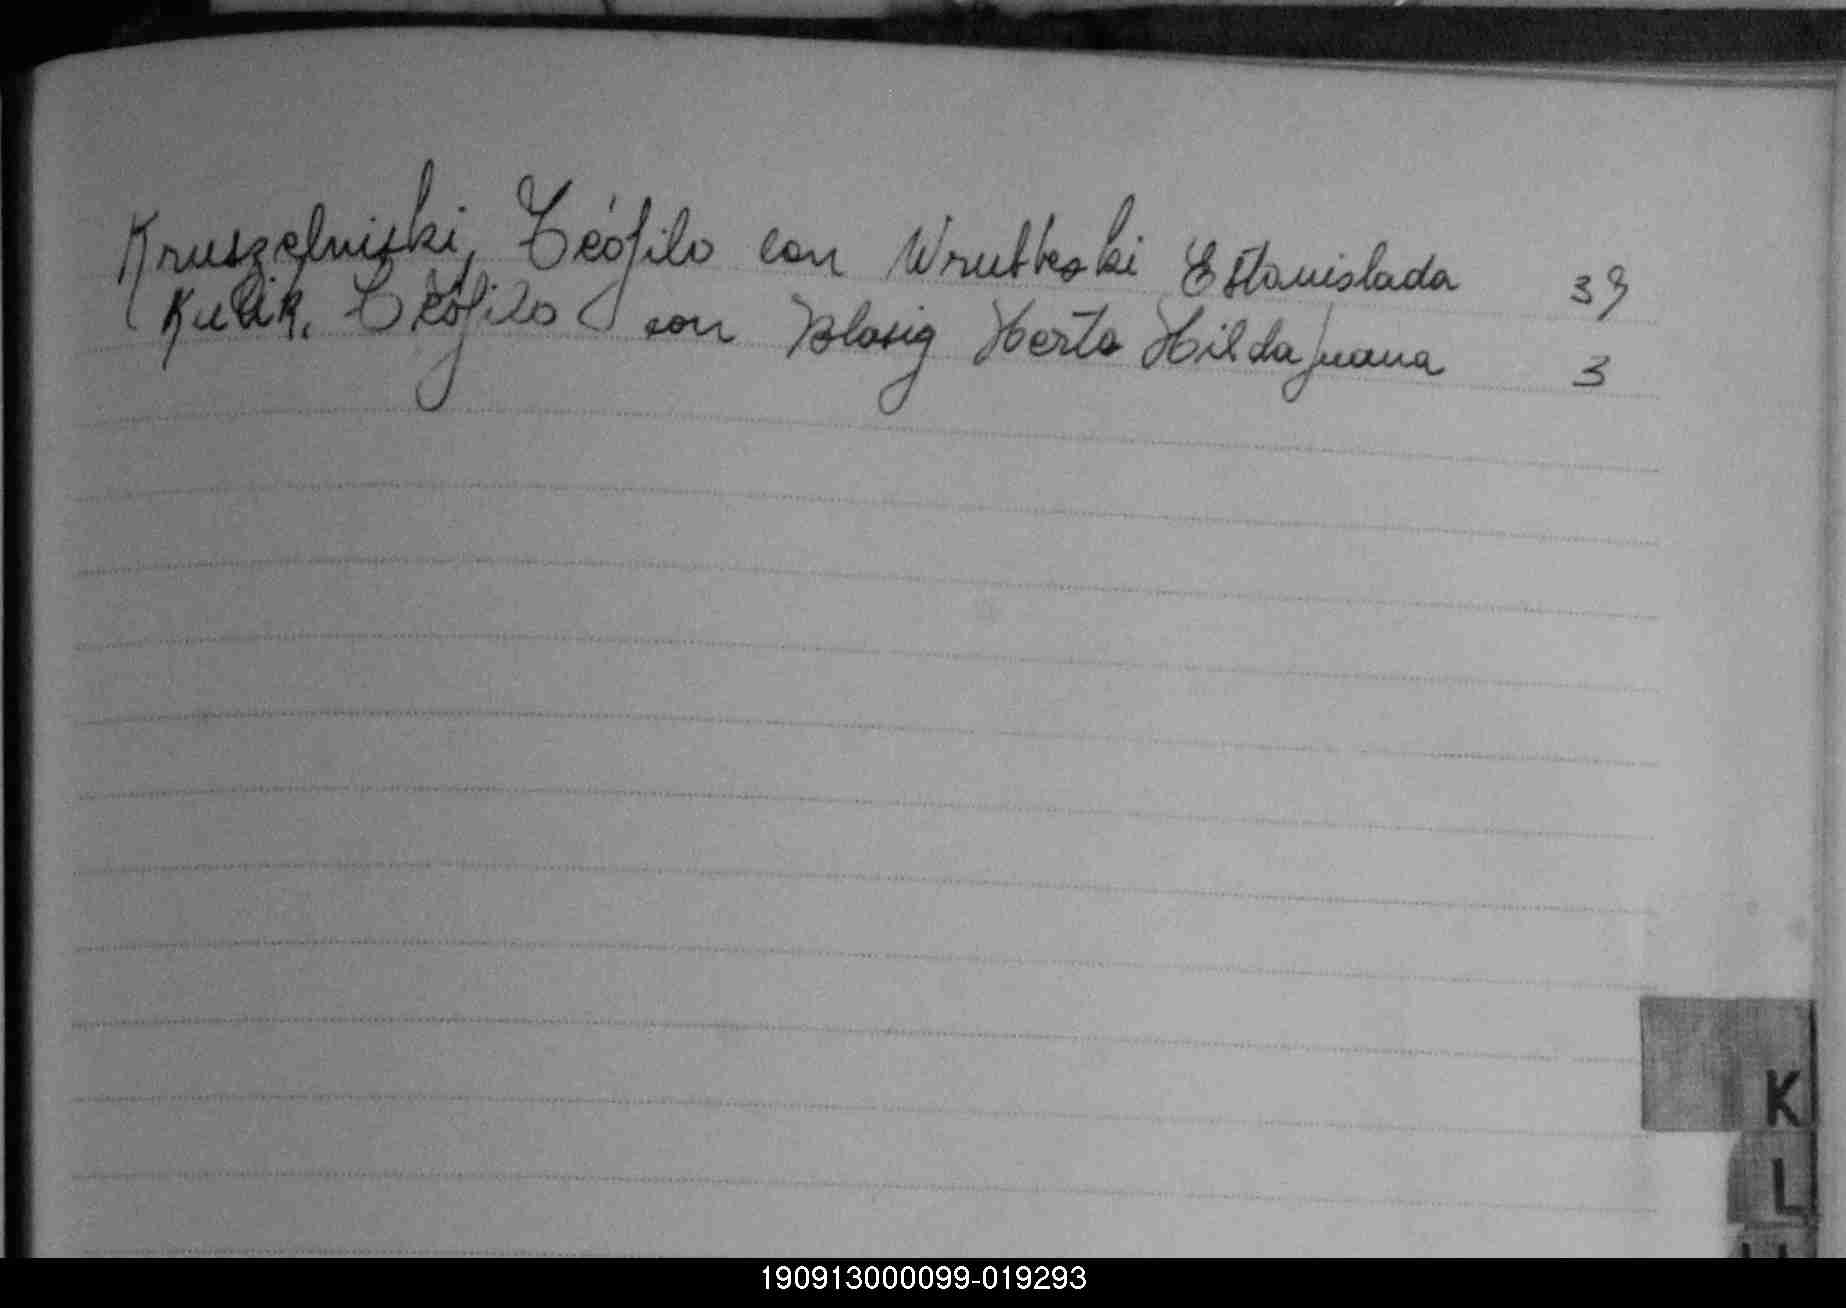 Kruszelniski, Teófilo con Wrubleski Estanislada 39
Kulik, Teófilo con Blasig Herta Hilda Juana 3
K
L
190913000099-019293